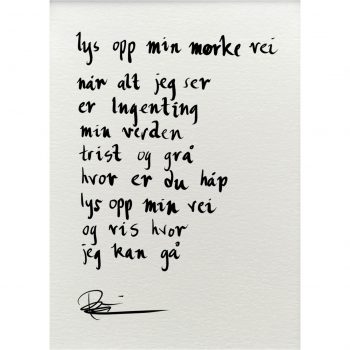 lys opp min mørke vei
når alt jeg ser
er Ingenting
min verden
trist og grå
hvor er du håp
lys opp min vei
og vis hvor
jeg kan gå